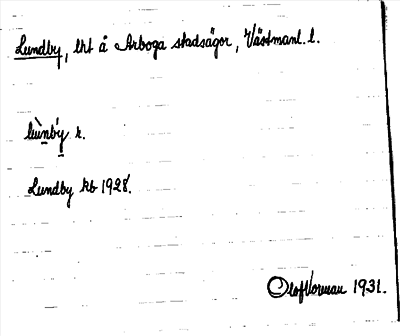 Lundby, lht å Arboga stadsägor, Västmanl. l.
lùnby r.
Lundby kb 1928.
Olof Norman 1931.